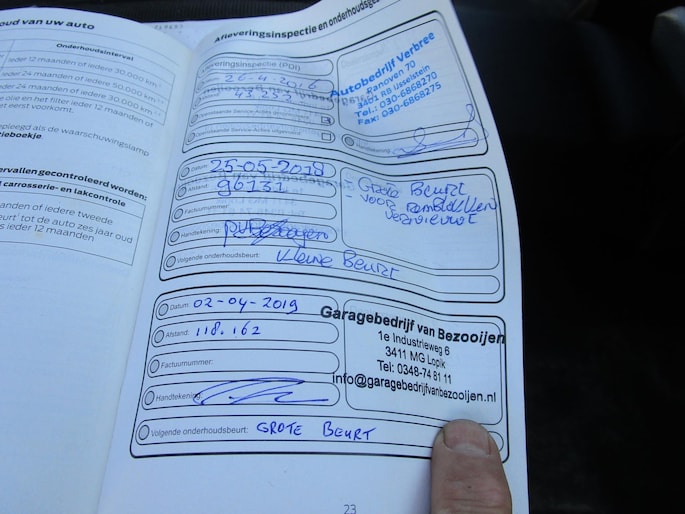 oud van uw auto
Onderhoudsinterval
ieder 12 maanden of iedere 30.000 km
ieder 24 maanden of iedere 50.000 km
ieder 24 maanden of iedere 30.000 km
olie en het filter ieder 12 maanden of
et eerst voorkomt.
pleegd als de waarschuwingslamp
tieboekje
ervallen gecontroleerd worden:
l carrosserie- en lakcontrole
anden of iedere tweede
eurt' tot de auto zes jaar oud
s ieder 12 maanden
Afleveringsinspectie en onderhoudsge
Afleveringsinspectie (PDI)
26-4 2016
Autobedrijf Verbree
Ranoven 70
3401 RB IJsselstein
Tel.: 030-6868270
Fax: 030-6868275
Handtekening:
Datum: 25-05-2018
Afstand: 96131
Factuurnummer:
Handtekening:
Volgende onderhoudsbeurt: Kleine Beurt
- Grote Beurt
- voor remblokken
vernieuwt
Datum: 02-04-2019
Afstand: 118.162
Factuurnummer:
Handtekening:
Volgende onderhoudsbeurt: GROTE BEURT
Garagebedrijf van Bezooijen
1e Industrieweg 6
3411 MG Lopik
Tel: 0348-74 81 11
info@garagebedrijfvanbezooijen.nl
23